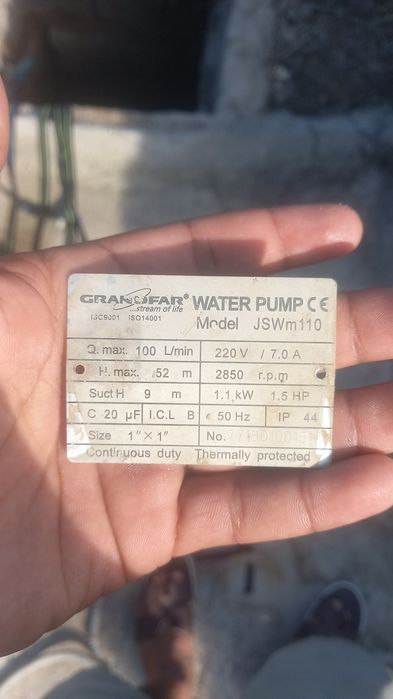 GRANDFAR® WATER PUMP CE
...stream of life
ISO9001 ISO14001
Model JSWm110
Q. max. 100 L/min 220 V / 7.0 A
H. max. 52 m 2850 r.p.m
Suct H 9 m 1.1 kW 1.5 HP
C 20 µF I.C.L B 50 Hz IP 44
Size 1" × 1" No.
Continuous duty Thermally protected